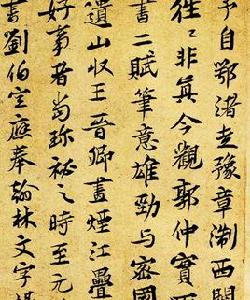 予自鄂渚至豫章淛西閱
往往非真今觀郭仲實
書二賦筆意雄勁与密國
遺山收王晉卿畫煙江疊
好事者尚珍祕之時至元
書劉伯宣應奉翰林文字